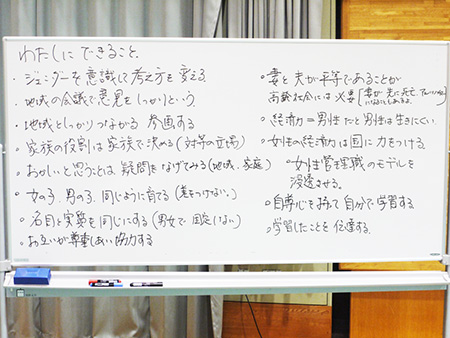 わたしにできること.
・ジェンダーを意識して考え方を変える
・地域の会議で意見をしっかりという
・地域としっかりつながる 参画する
・家族の役割は家族で決める(対等の立場)
・おかしいと思うことは疑問をなげてみる(地域、家庭)
・女の子、男の子、同じように育てる(差をつけない。)
・名目と実質を同じにする(男女で固定しない)
・お互いが尊重しあい協力する
・妻と夫が平等であることが
高齢社会には必要
・経済力=男性だと男性は生きにくい.
・女性の経済力は国に力をつける.
・女性管理職のモデルを
浸透させる.
・自尊心を持って自分で学習する
・学習したことを伝達する.